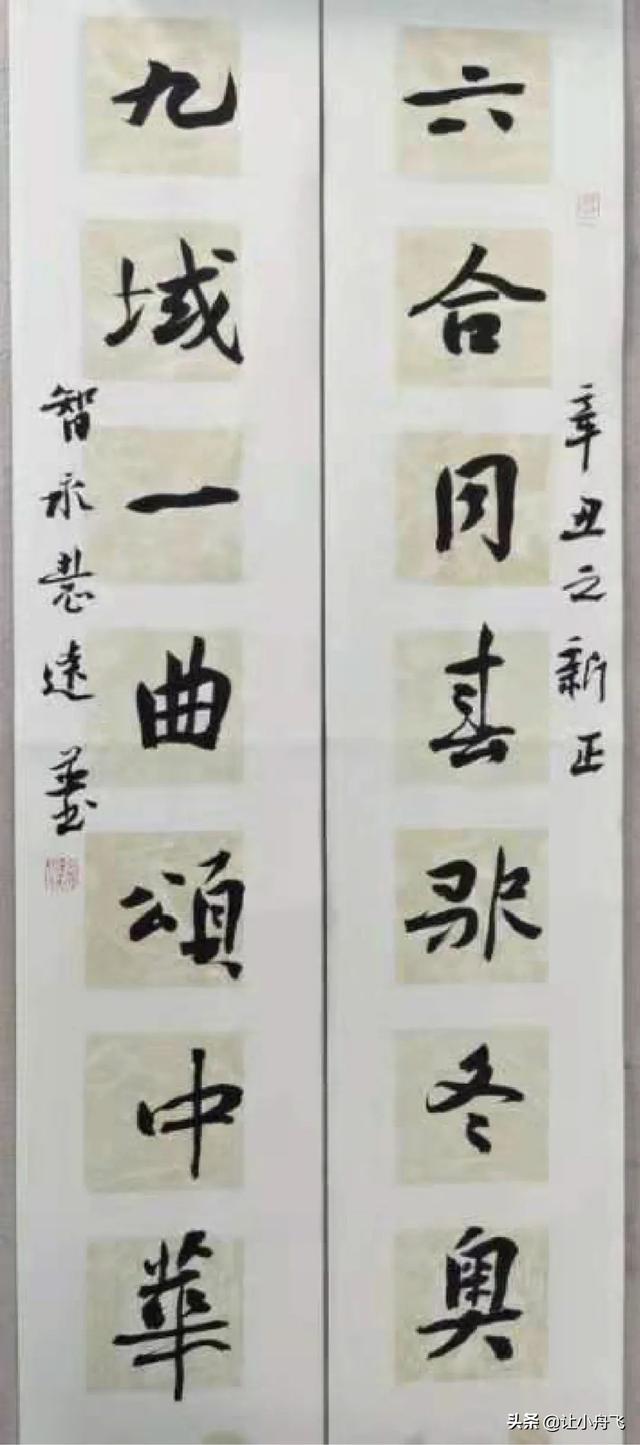 六合同春歌冬奥
辛丑之新正
九域一曲頌中華
智永慧遠
头条 @让小舟飞